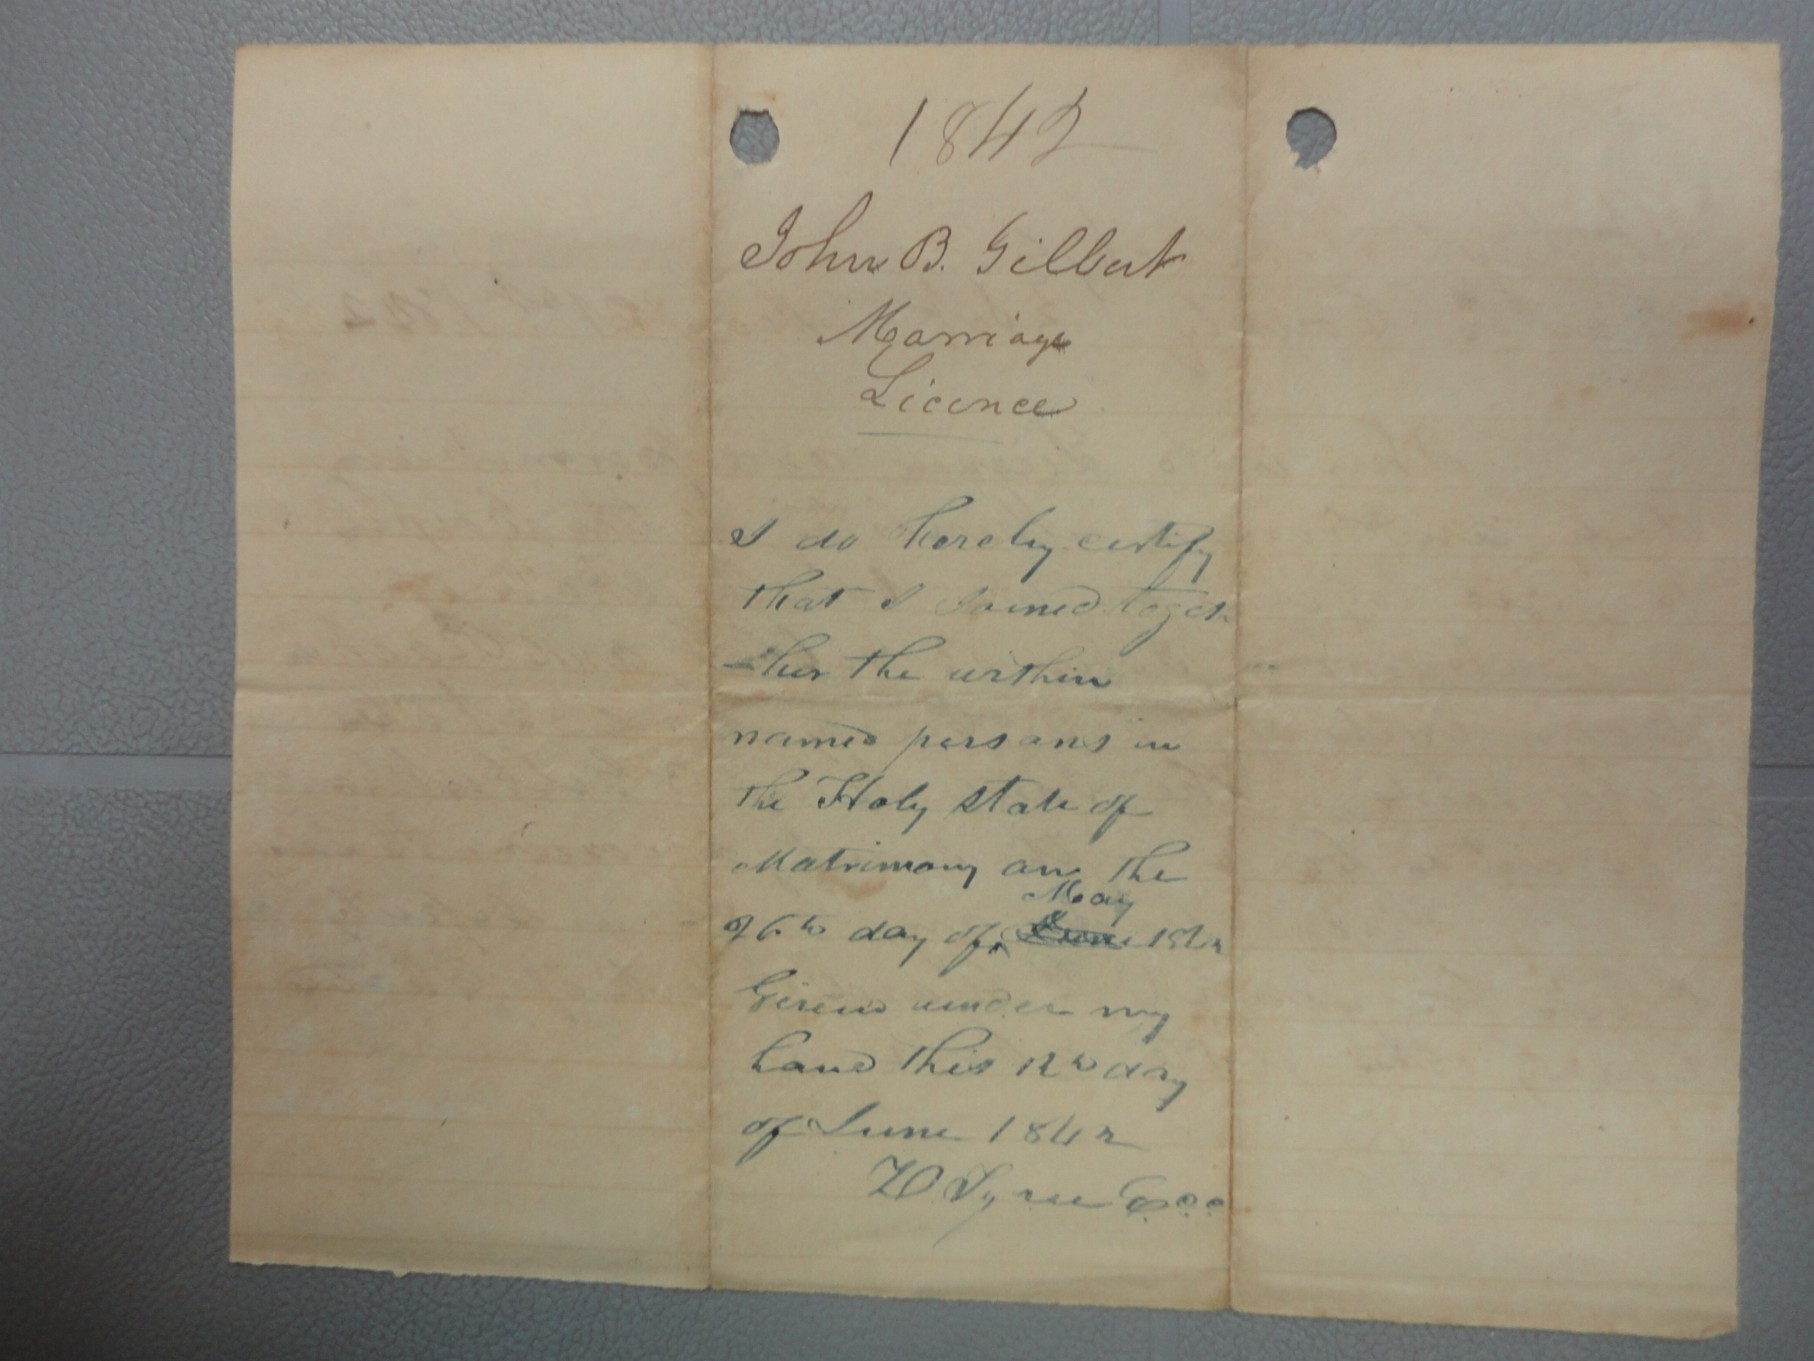 1842
John B. Gilbert
Marriage
Licence
I do hereby certify
that I Joined toget
-her the within
named persons in
the Holy state of
Matrimony on the
May
26th day of June 1842
Given under my
hand this 12th day
of June 1842